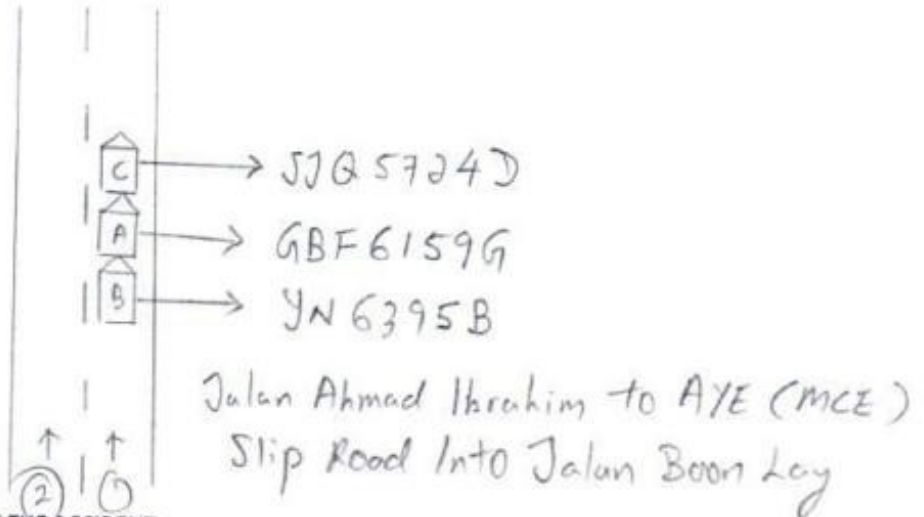 C SJQ5724D
A GBF6159G
B YN6395B
Jalan Ahmad Ibrahim to AYE (MCE)
Slip Road Into Jalan Boon Lay
2 1